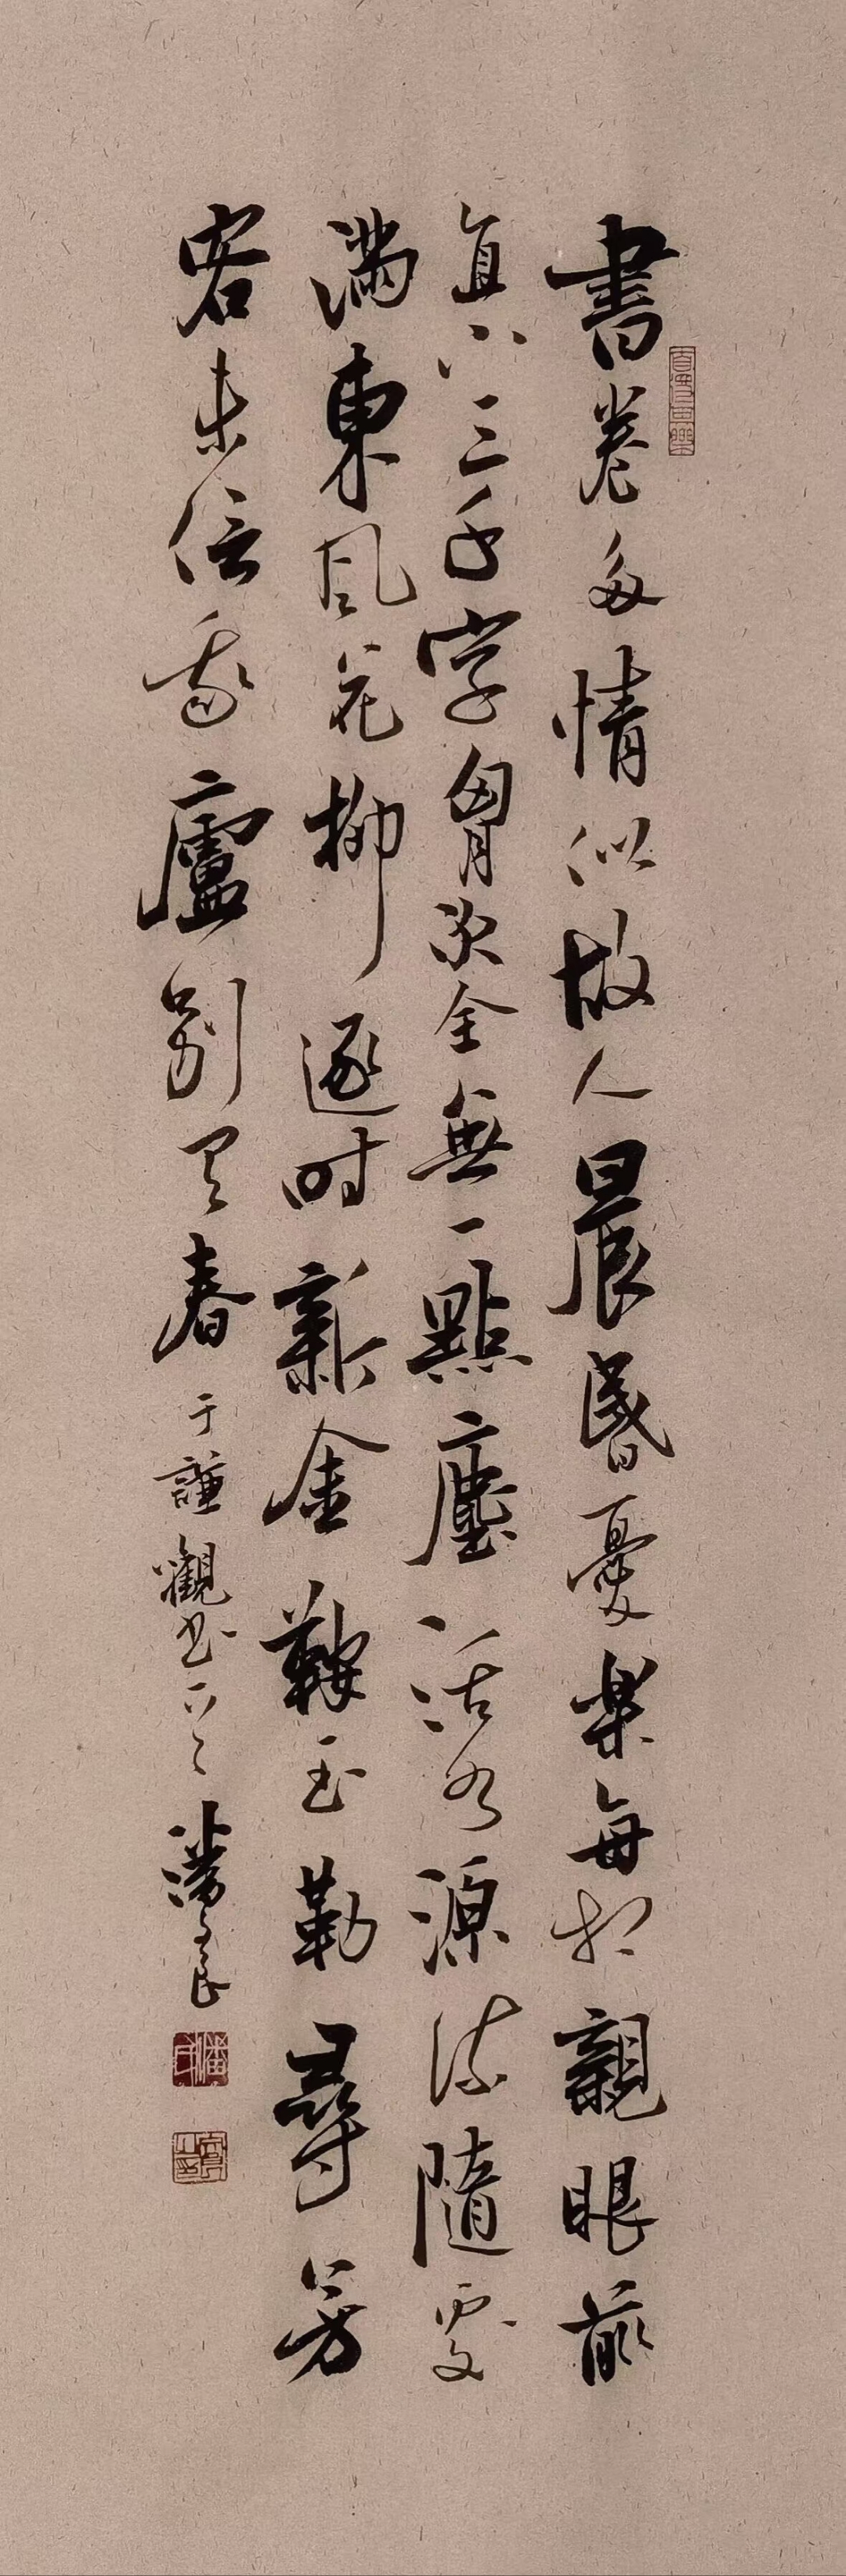 書卷多情似故人晨昬憂楽每相親眼前
直下三千字胷次全無一點塵活水源流隨處
滿東風花柳逐时新金鞍玉勒尋芳
客未信我廬別有春 于謙觀书 潘良